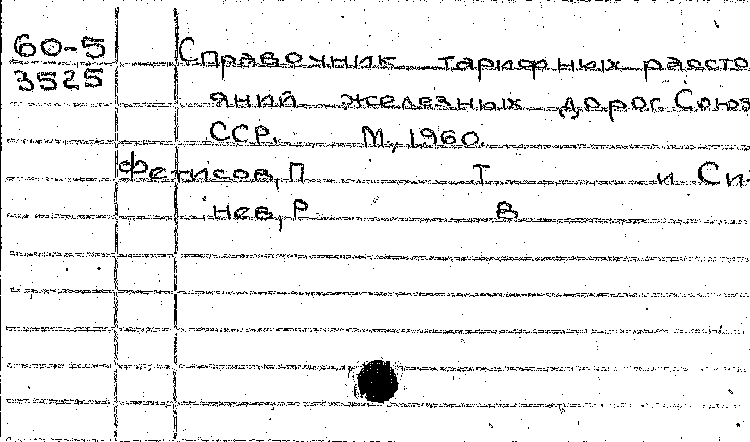 60-5 Справочник тарифных рассто
3525 яний железных дорог Союз
ССР. М., 1960.
Фетисов, П Т и Си-
нев, Р В